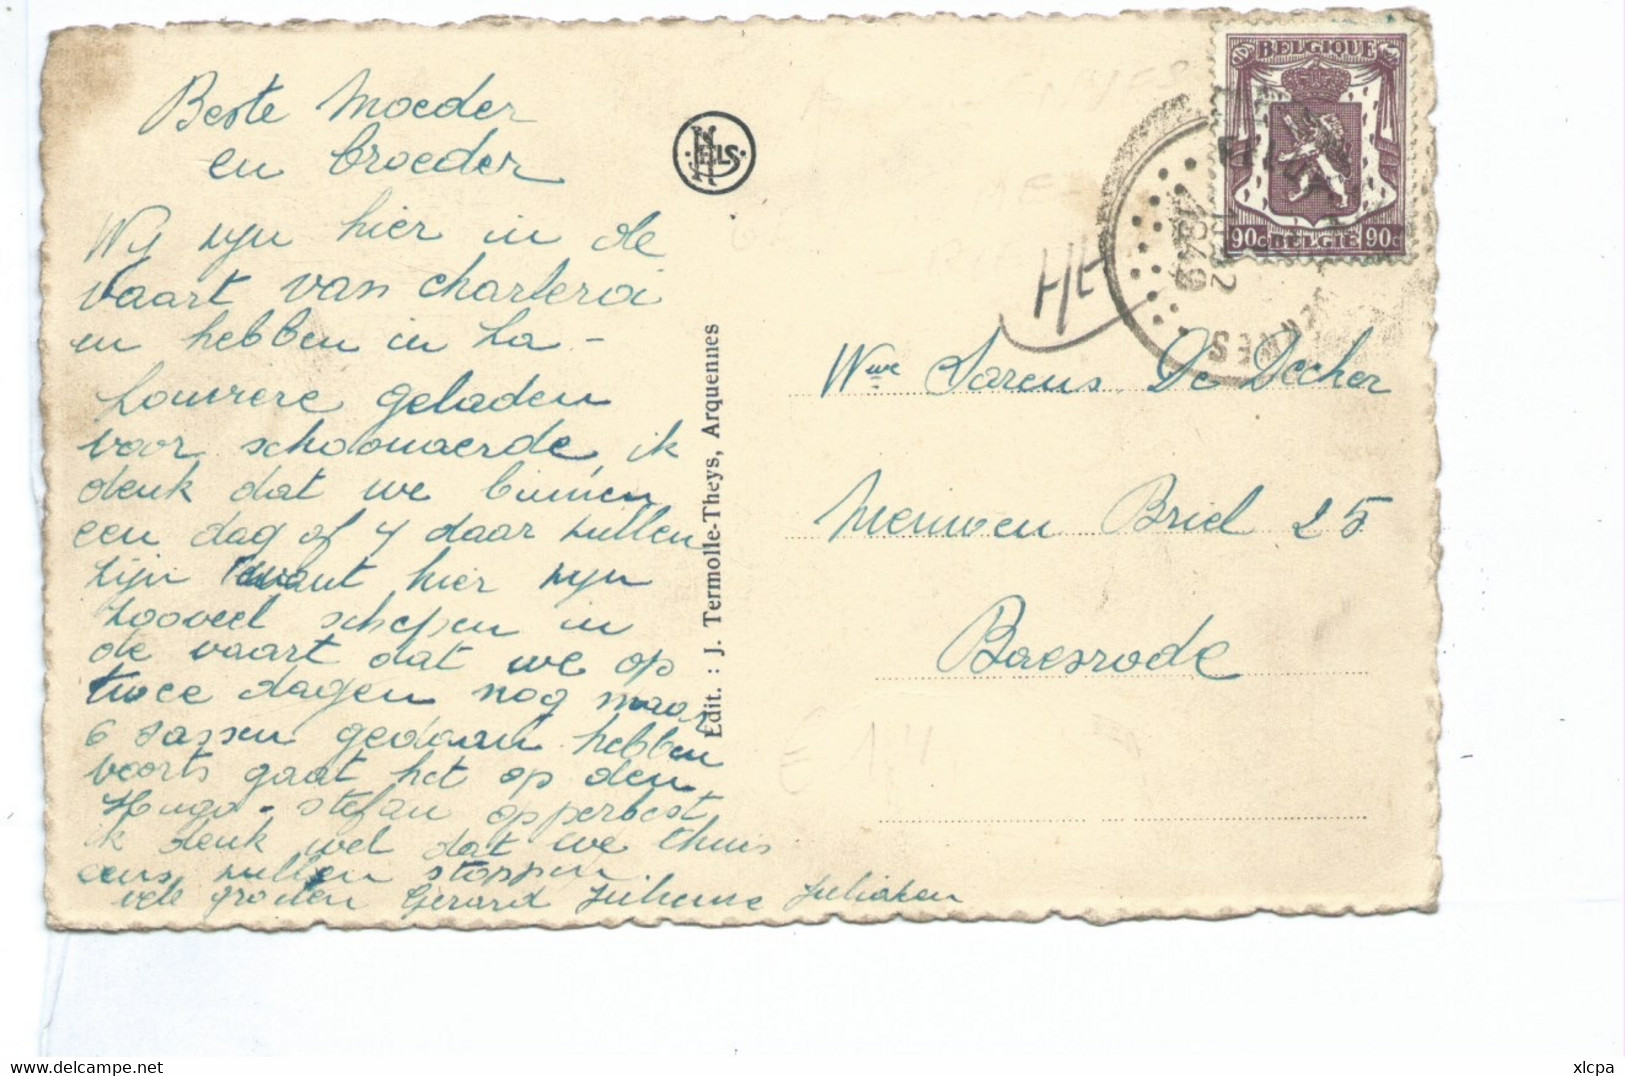 Beste Moeder
en broeder
Wij zijn hier in de
vaart van charleroi
en hebben in La-
Louvrere geladen
voor schoonaerde, ik
denk dat we binnen
een dag of 4 daar zullen
zijn want hier zijn
zooveel schepen in
de vaart dat we op
twee dagen nog maar
6 sassen gedaan hebben
voorts gaat het op den
Hugo-stefan opperbest
ik denk wel dat we thuis
eens zullen stoppen
vele groeten Gerard Julienne Juliaken
NELS
Edit. : J. Termolle-Theys, Arquennes
BELGIQUE
90c BELGIË 90c
HE
Wwe Sarens De Decker
Nieuwen Briel 25
Baesrode
xlcpa